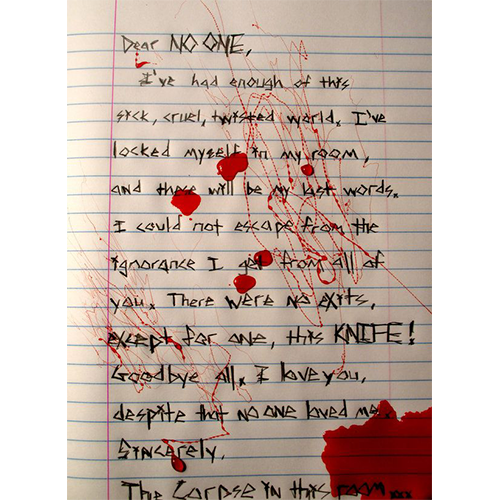 Dear NO ONE,
I've had enough of this
sick, cruel, twisted world. I've
locked myself in my room,
and these will be my last words.
I could not escape from the
ignorance I get from all of
you. There were no exits,
except for one, this KNIFE!
Goodbye all. I love you,
despite that no one loved me.
Sincerely,
The Corpse in this room...